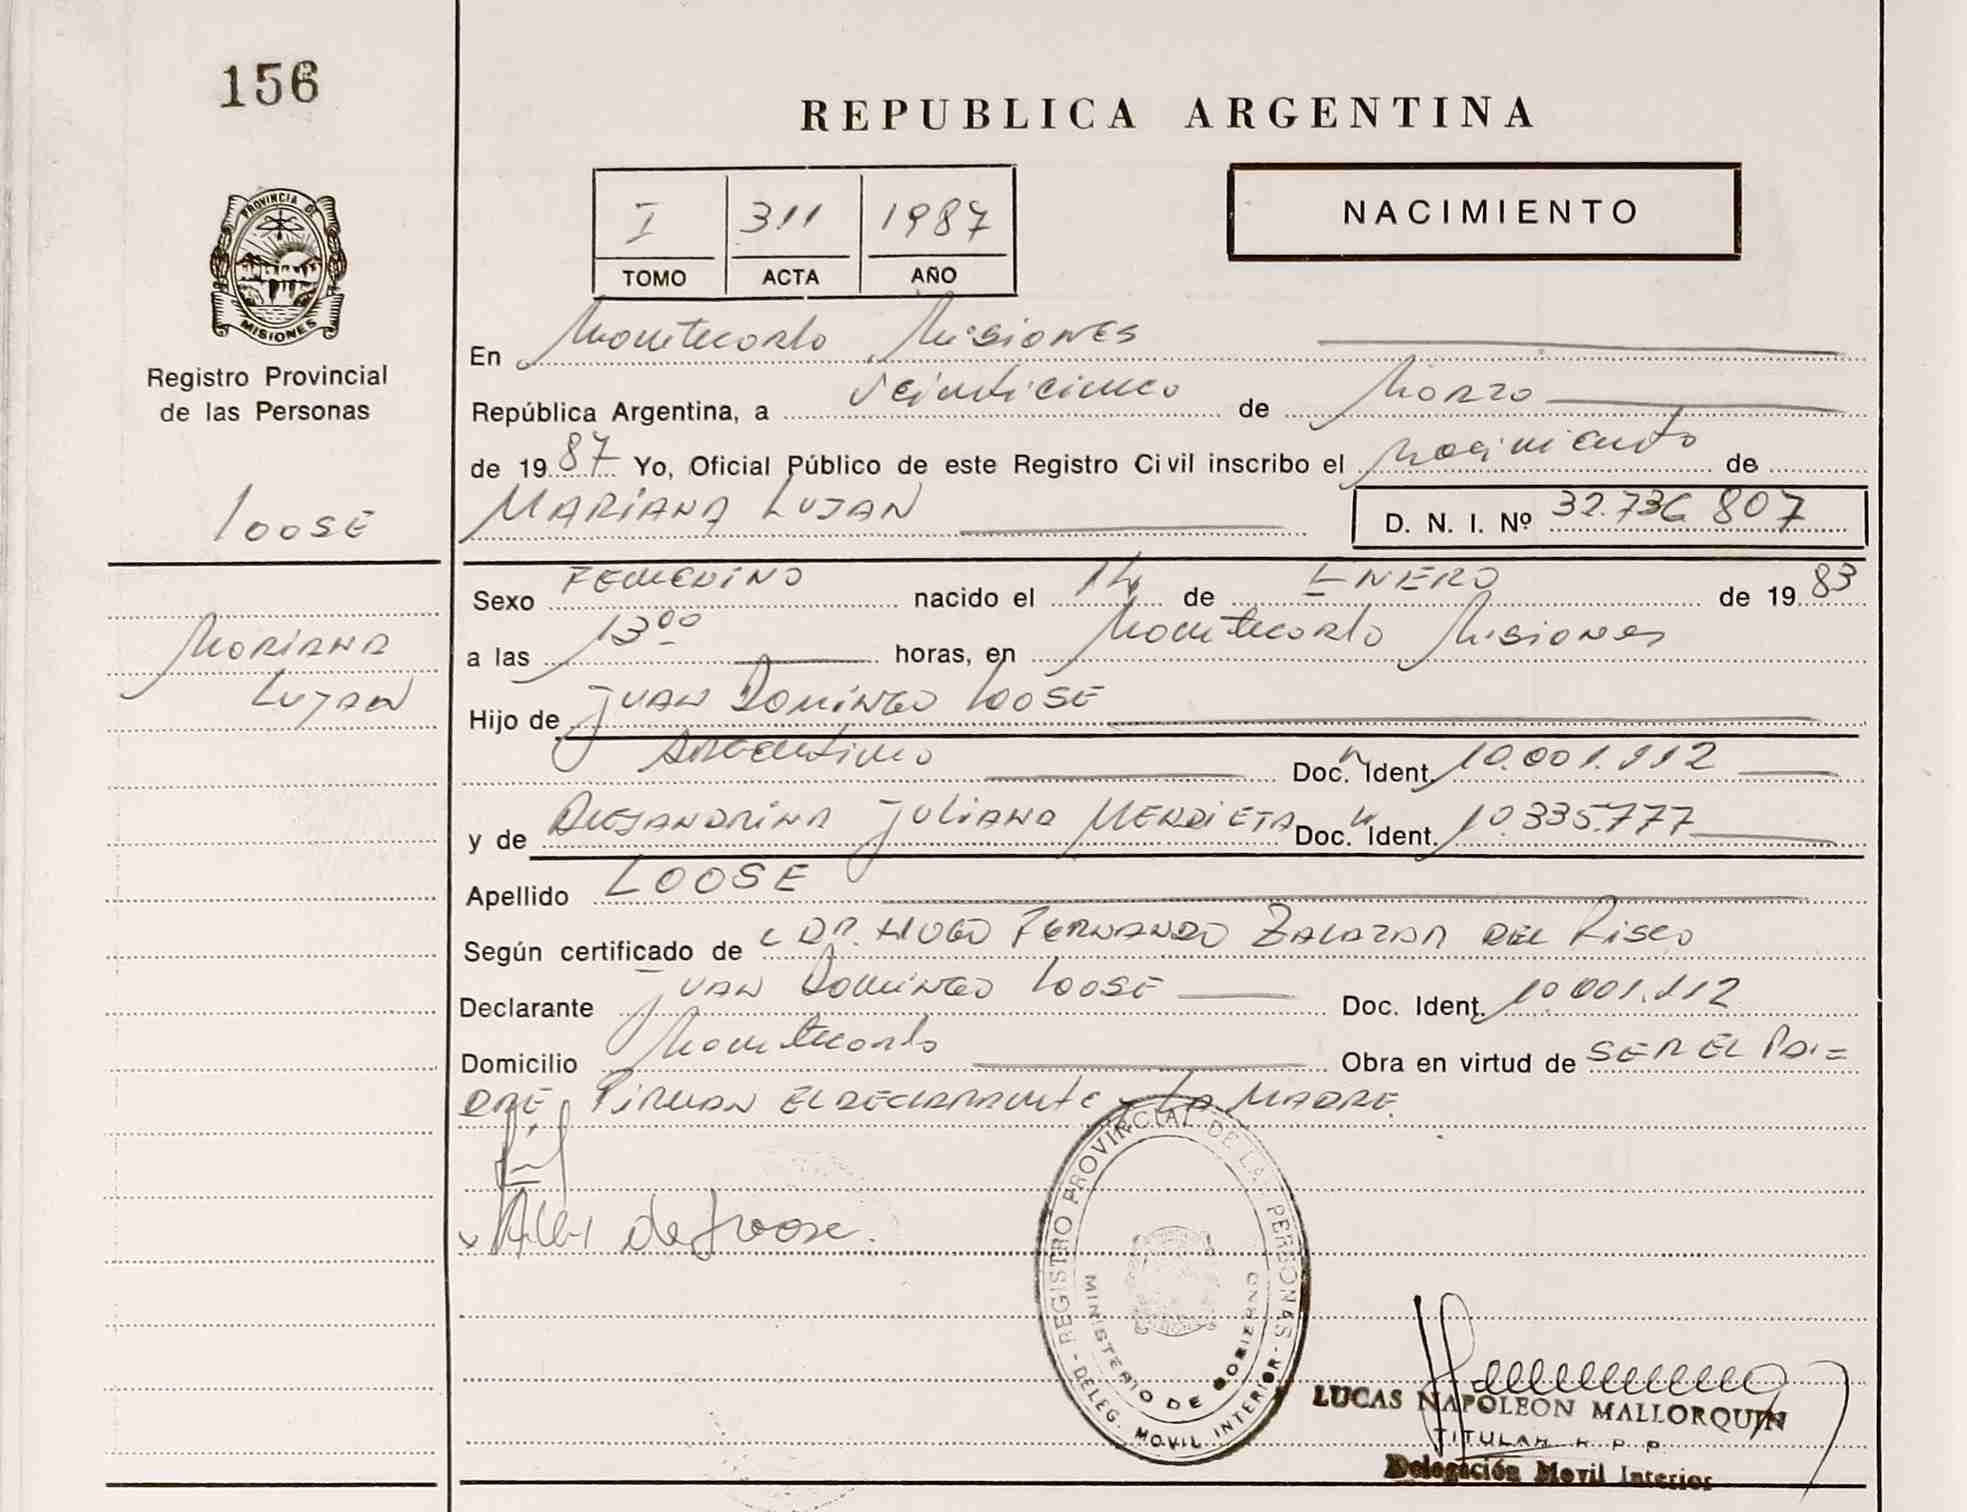 156
REPUBLICA ARGENTINA
PROVINCIA DE
MISIONES
Registro Provincial
de las Personas
I 311 1987
TOMO ACTA AÑO
NACIMIENTO
En Montecarlo Misiones
República Argentina, a veinticinco de Marzo
de 1987 Yo, Oficial Público de este Registro Civil inscribo el nacimiento de
LOOSE
MARIANA LUJAN
D. N. I. Nº 32.736 807
Sexo FEMENINO nacido el 14 de ENERO de 1983
Mariana
Lujan
a las 13 00 horas, en Montecarlo Misiones
Hijo de JUAN DOMINGO LOOSE
ARGENTINO Doc. Ident. 10.001.112
y de ALEJANDRINA JULIANA MERDIETA Doc. Ident. 10.335.777
Apellido LOOSE
Según certificado de DR. HUGO FERNANDO ZALAZAR DEL RISCO
Declarante JUAN DOMINGO LOOSE Doc. Ident. 10 001.112
Domicilio Montecarlo Obra en virtud de SER EL PA=
DRE, FIRMAN EL DECLARANTE y LA MADRE.
de Loose.
REGISTRO PROVINCIAL DE LAS PERSONAS
MINISTERIO DE GOBIERNO
- DELEG. MOVIL INTERIOR -
LUCAS NAPOLEON MALLORQUIN
TITULAR R. P. P.
Delegación Movil Interior